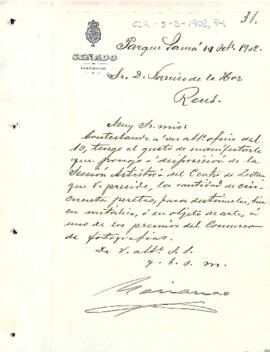 CR-5-3-1902, 34
31.
SENADO
PARTICULAR
Parque Samá 11 Octbre 1902.
Sr. D. Narciso de la Hoz
Reus.
Muy Sr. mio:
Contestando á su attº oficio del
10, tengo el gusto de manifestarle
que pongo á disposición de la
Sección Artística del Centro de Lectura
que V. preside, la cantidad de cin-
cuenta pesetas, para destinarlas, bien
en metálico, ó en objeto de arte, á
uno de los premios del Concurso
de fotografías.
De V. attº S. S.
q. b. s. m.
Marianao